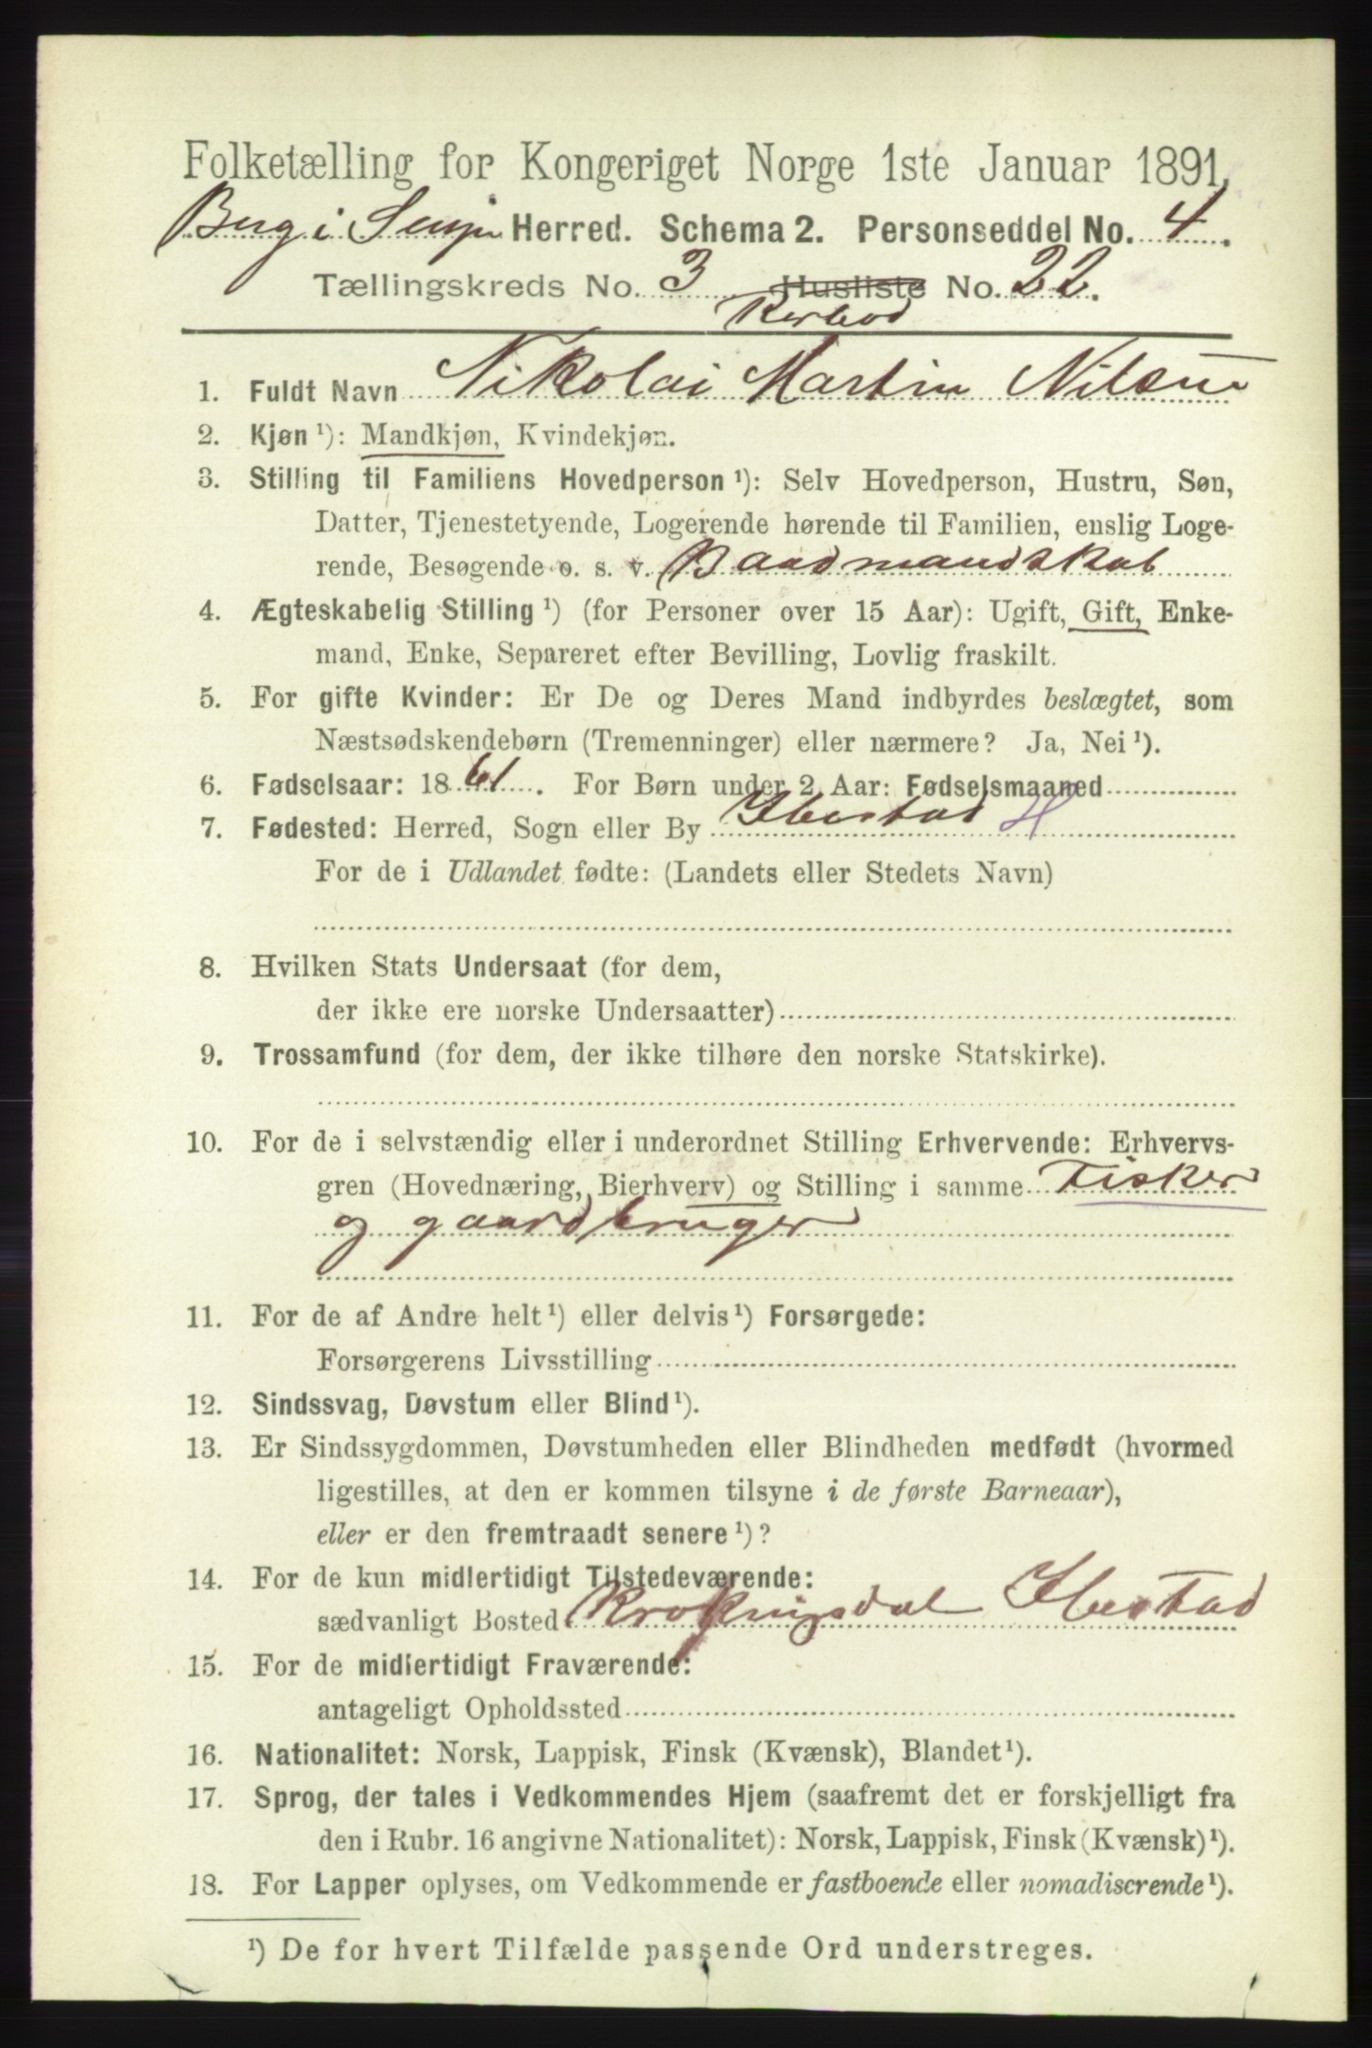 Folketælling for Kongeriget Norge 1ste Januar 1891.
Berg i Senjen Herred. Schema 2. Personseddel No. 4.
Tællingskreds No. 3 Husliste No. 22.
Rorbod
1. Fuldt Navn Nikolai Martin Nilsen
2. Kjøn ¹): Mandkjøn, Kvindekjøn.
3. Stilling til Familiens Hovedperson ¹): Selv Hovedperson, Hustru, Søn,
Datter, Tjenestetyende, Logerende hørende til Familien, enslig Loge-
rende, Besøgende o. s. v. Baadmandskab
4. Ægteskabelig Stilling ¹) (for Personer over 15 Aar): Ugift, Gift, Enke-
mand, Enke, Separeret efter Bevilling, Lovlig fraskilt.
5. For gifte Kvinder: Er De og Deres Mand indbyrdes beslægtet, som
Næstsødskendebørn (Tremenninger) eller nærmere? Ja, Nei ¹).
6. Fødselsaar: 1861. For Børn under 2 Aar: Fødselsmaaned
7. Fødested: Herred, Sogn eller By Ibestad H
For de i Udlandet fødte: (Landets eller Stedets Navn)
8. Hvilken Stats Undersaat (for dem,
der ikke ere norske Undersaatter)
9. Trossamfund (for dem, der ikke tilhøre den norske Statskirke).
10. For de i selvstændig eller i underordnet Stilling Erhvervende: Erhvervs-
gren (Hovednæring, Bierhverv) og Stilling i samme Fisker
og gaardbruger
11. For de af Andre helt ¹) eller delvis ¹) Forsørgede:
Forsørgerens Livsstilling
12. Sindssvag, Døvstum eller Blind ¹).
13. Er Sindssygdommen, Døvstumheden eller Blindheden medfødt (hvormed
ligestilles, at den er kommen tilsyne i de første Barneaar),
eller er den fremtraadt senere ¹)?
14. For de kun midlertidigt Tilstedeværende:
sædvanligt Bosted Ibestad
15. For de midlertidigt Fraværende:
antageligt Opholdssted
16. Nationalitet: Norsk, Lappisk, Finsk (Kvænsk), Blandet ¹).
17. Sprog, der tales i Vedkommendes Hjem (saafremt det er forskjelligt fra
den i Rubr. 16 angivne Nationalitet): Norsk, Lappisk, Finsk (Kvænsk) ¹).
18. For Lapper oplyses, om Vedkommende er fastboende eller nomadiserende ¹).
¹) De for hvert Tilfælde passende Ord understreges.